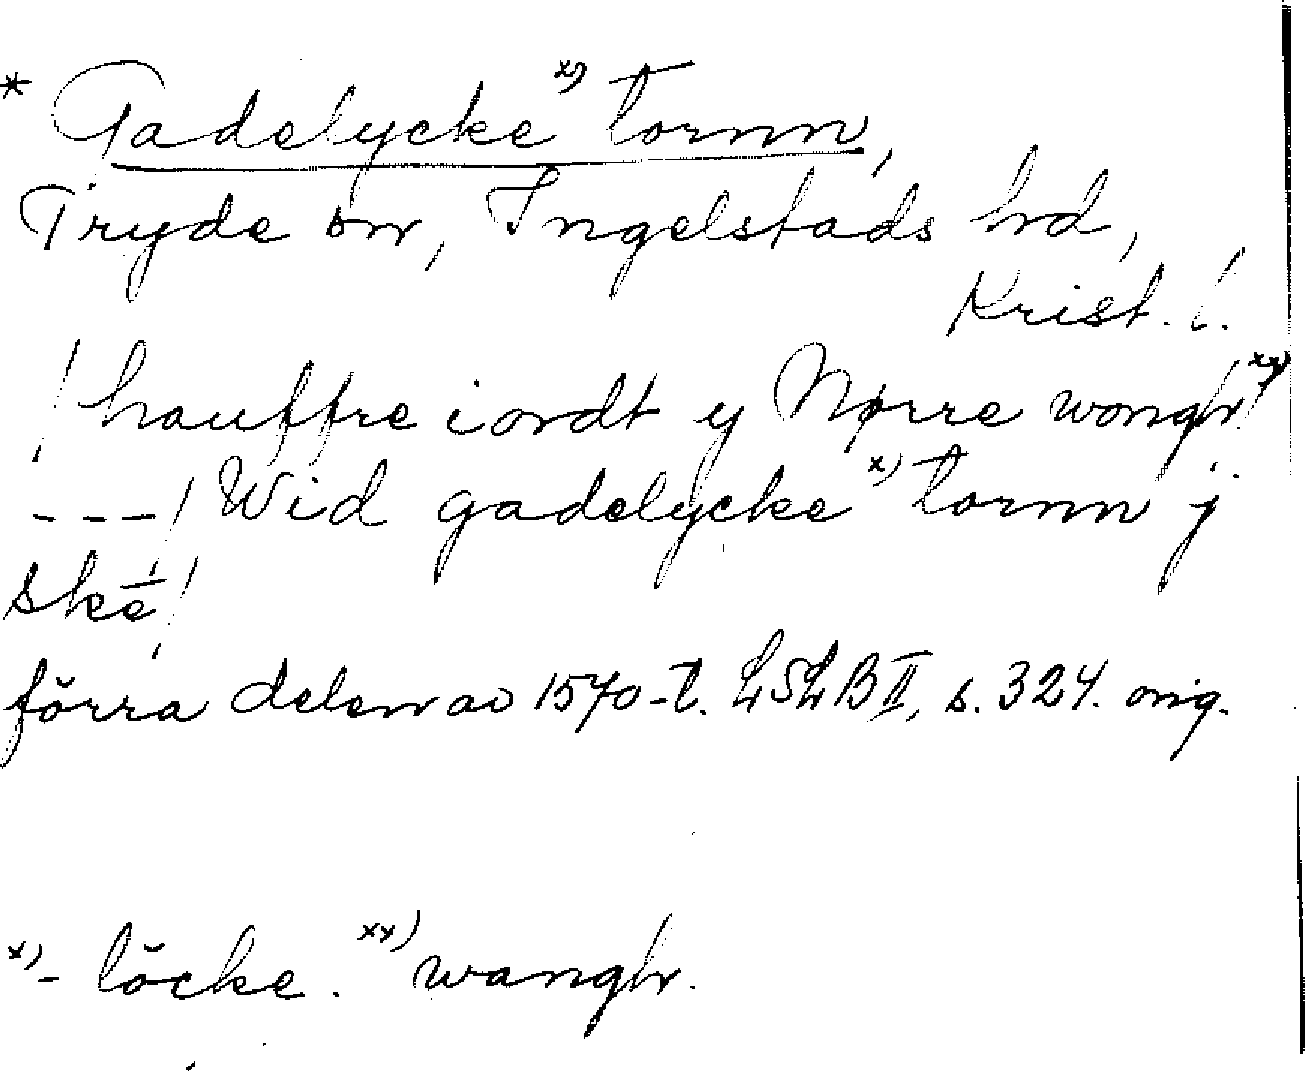 * Gadelycke x) tornn,
Tryde sn, Ingelstads hd,
Krist. l.
/ hauffre iordt y Nørre wongh xx) /
---/ Wid gadelycke x) tornn j
skē /
förra delen av 1570-t. LSLB II, s. 324. orig.
x) - löcke. xx) wangh.